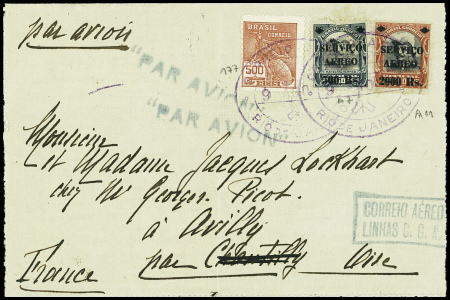 par avion
BRASIL
CORREIO
500
SERVIÇO
AEREO
SERVIÇO
AEREO
2000 Rs.
177
"PAR AVION"
"PAR AVION"
RIO DE JANEIRO
Monsieur
et Madame Jacques Lockhart
chez Mr Georges Picot.
à Avilly
par Chantilly Oise
France
CORREIO AÉREO
LINHAS C. G. A.